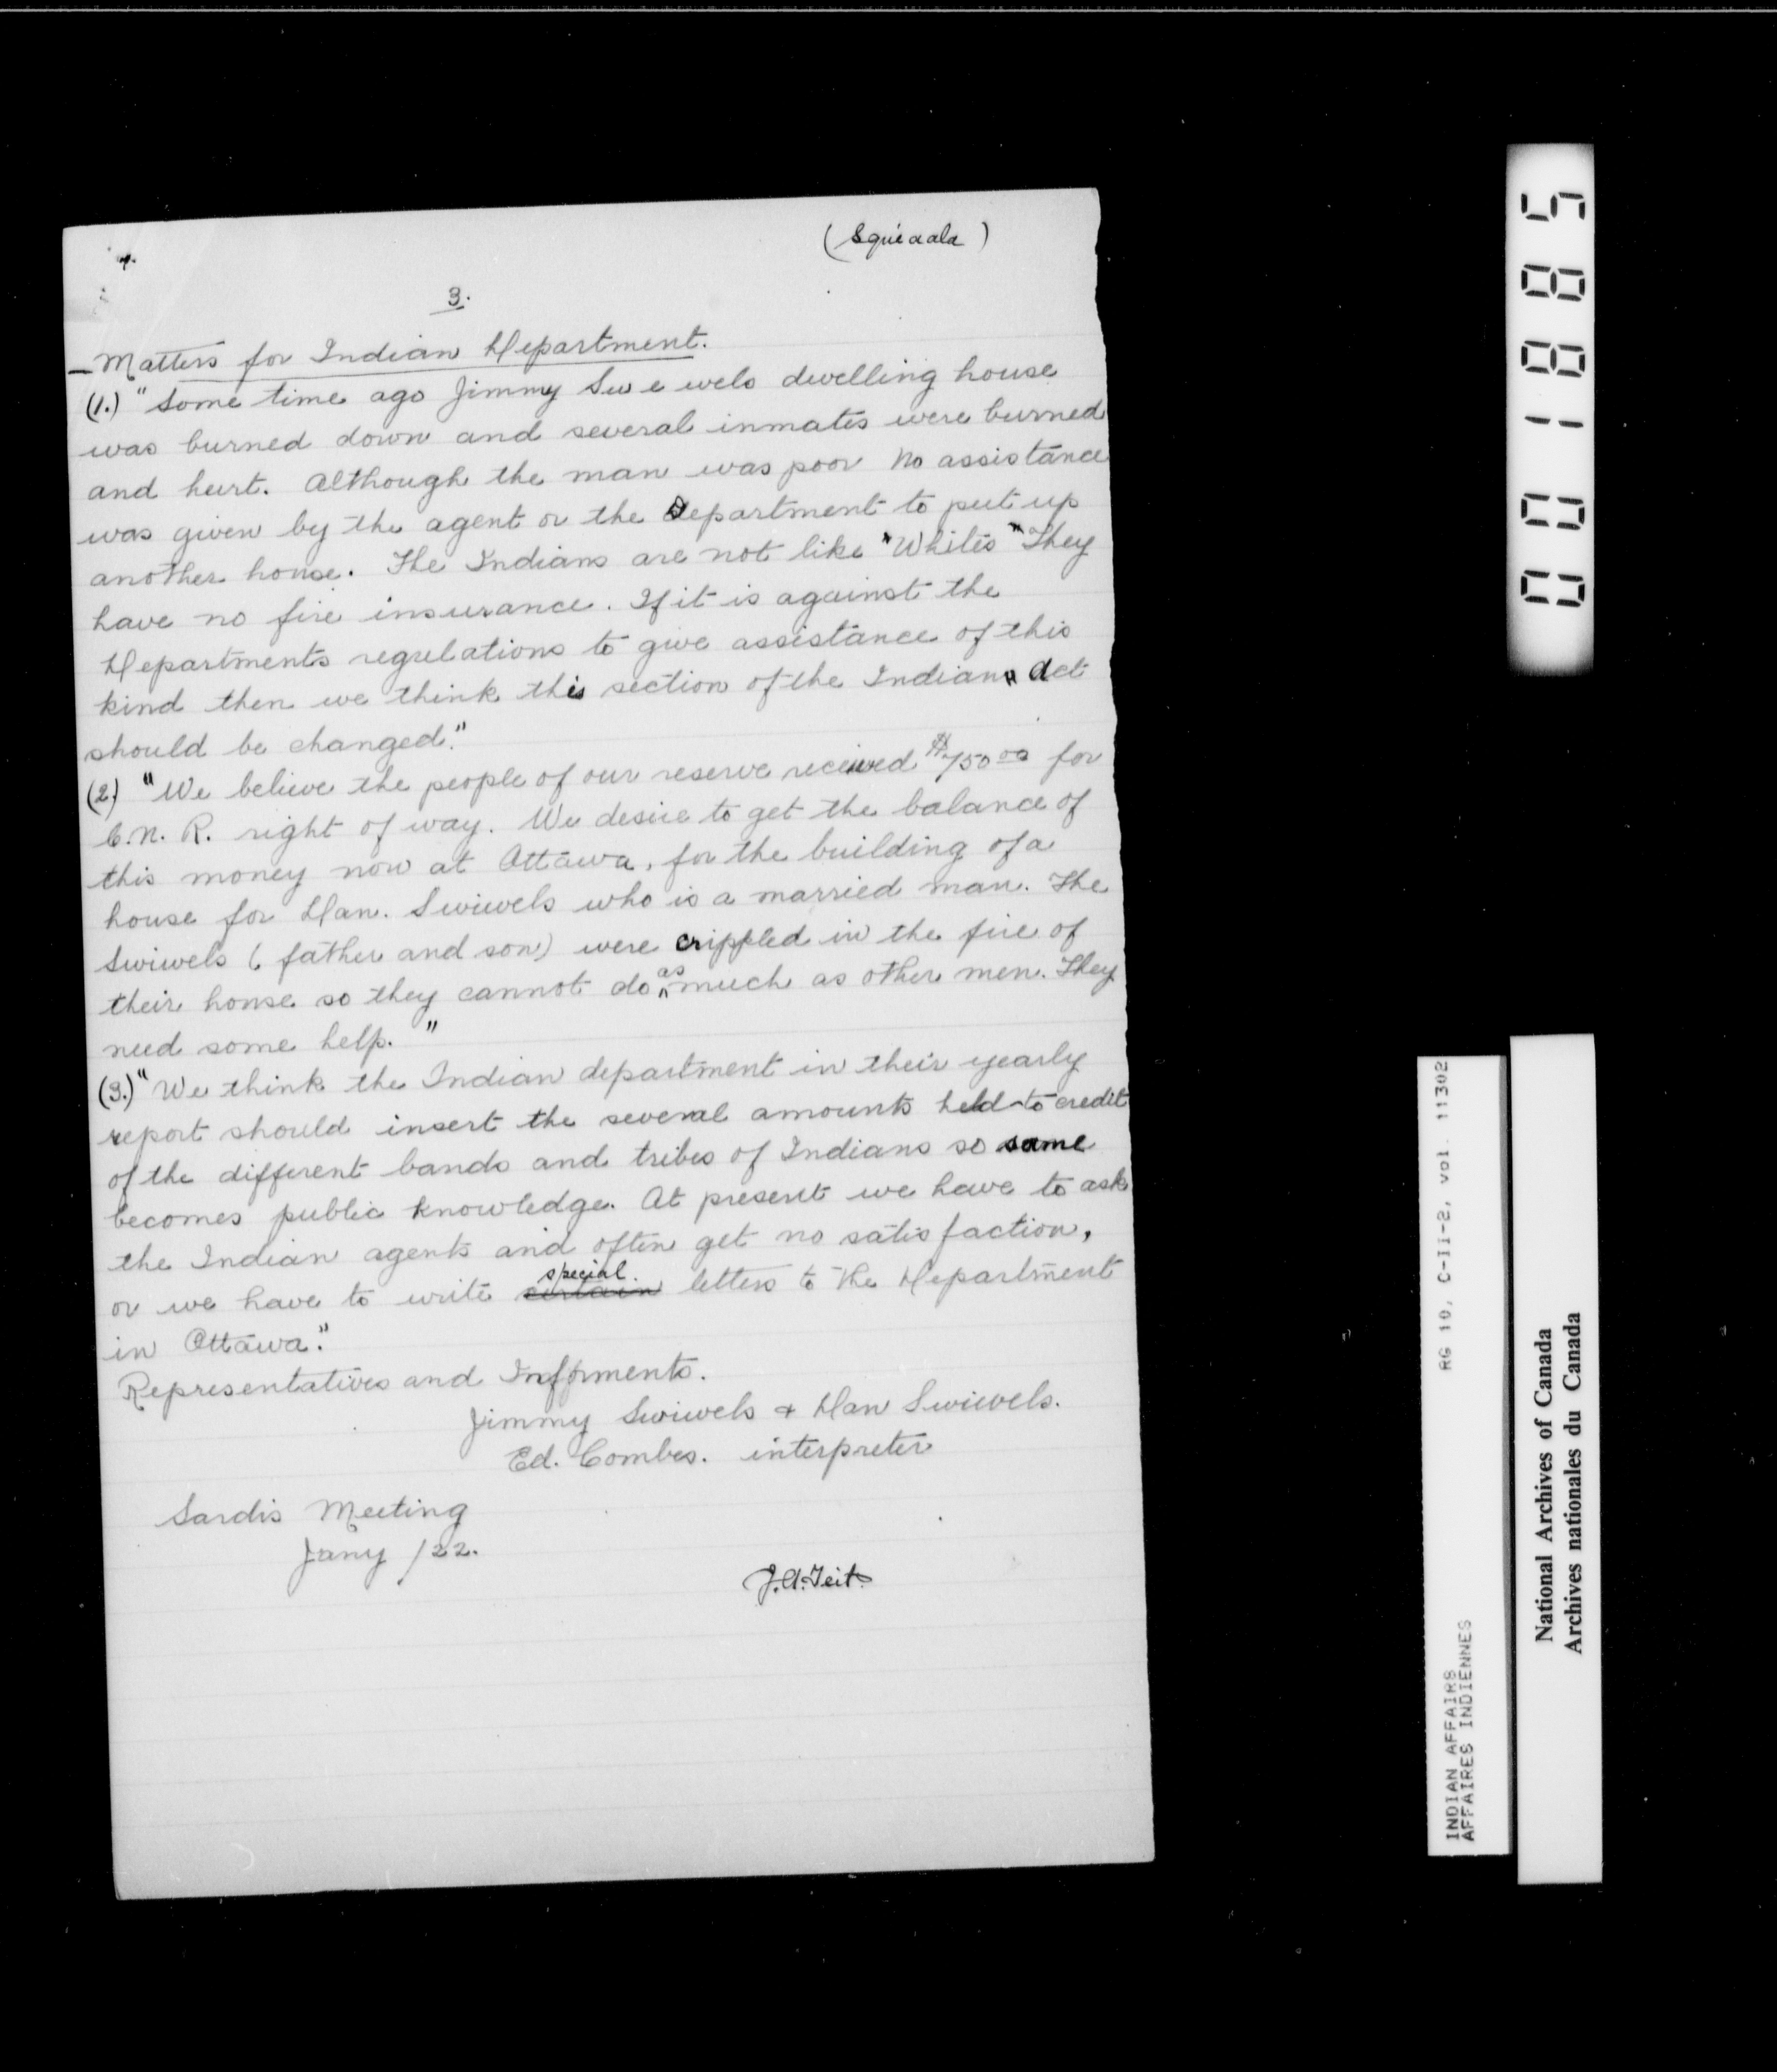 (Squiaala)
3.
Matters for Indian Department.
(1.) "Some time ago Jimmy Swewels dwelling house
was burned down and several inmates were burned
and hurt. Although the man was poor no assistance
was given by the agent or the Department to put up
another house. The Indians are not like "Whites" They
have no fire insurance. If it is against the
Departments regulations to give assistance of this
kind then we think this section of the Indian Act
should be changed."
(2.) "We believe the people of our reserve received $750 00 for
C.N.R. right of way. We desire to get the balance of
this money now at Ottawa, for the building of a
house for Dan. Swiwels who is a married man. The
Swiwels (father and son) were crippled in the fire of
their house so they cannot do as much as other men. They
need some help."
(3.) "We think the Indian department in their yearly
report should insert the several amounts held to credit
of the different bands and tribes of Indians so same
becomes public knowledge. At present we have to ask
the Indian agents and often get no satisfaction,
or we have to write certain special letters to the Department
in Ottawa."
Representatives and Informents.
Jimmy Swiwels & Dan Swiwels.
Ed. Combes. interpreter
Sardis Meeting
Jany /22.
J.A. Teit.
001885
INDIAN AFFAIRS RG 10, C-II-2, vol. 11302
AFFAIRES INDIENNES
National Archives of Canada
Archives nationales du Canada